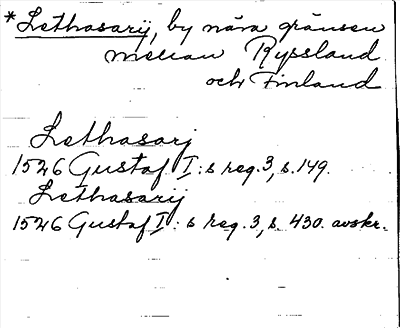 *Lethasarij, by nära gränsen
mellan Ryssland
och Finland
Lethasarj
1526 Gustaf I:s reg. 3, s. 149.
Lethasarij
1526 Gustaf I:s reg. 3, s. 430. avskr.